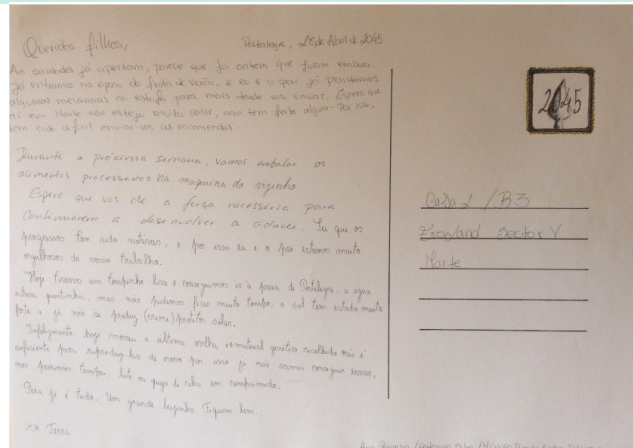 Queridos filhos,
Portalegre, 28 de Abril de 2045
As saudades já apertam, parece que foi ontem que foram embora.
Já entramos na época da fruta de verão, e eu e o pai já plantamos
algumas na estufa para mais tarde vos enviar. Espero que
aí em Marte não esteja muito calor, aqui tem feito algum. Por isso,
tem sido difícil enviar-vos as encomendas.
Durante a próxima semana, vamos embalar os
alimentos processados na maquina do vizinho.
Espero que vos dê a força necessária para
continuarem a desenvolver a cidade. Sei que os
progressos têm sido notórios, e por isso eu e o pai estamos muito
orgulhosos do vosso trabalho.
Hoje tivemos um tempinho livre e conseguimos ir à praia de Portalegre, a água
estava quentinha, mas não pudemos ficar muito tempo, o sol tem estado muito
forte e já não se produz (creme) protetor solar.
Infelizmente hoje morreu a última ovelha e o material genético recolhido não é
suficiente para reproduzi-las de novo por isso já não vamos conseguir enviar,
nos próximos tempos, leite ou queijo de cabra em comprimido.
Por aqui é tudo. Um grande beijinho. Fiquem bem.
xx Terra
2045
Casa 2 / B3
Sector V
Marte